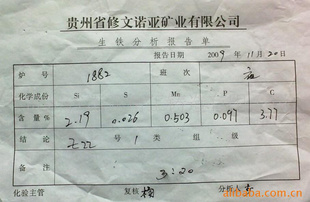 贵州省修文诺亚矿业有限公司
生铁分析报告单
报告日期 2009年11月20日
炉号 1882 班次
化学成份 Si S Mn P C
含量% 2.19 0.026 0.503 0.097 3.77
结论 Z22 号 1 类 组 级
备注 3:20
化验主管 复核 杨 分析人